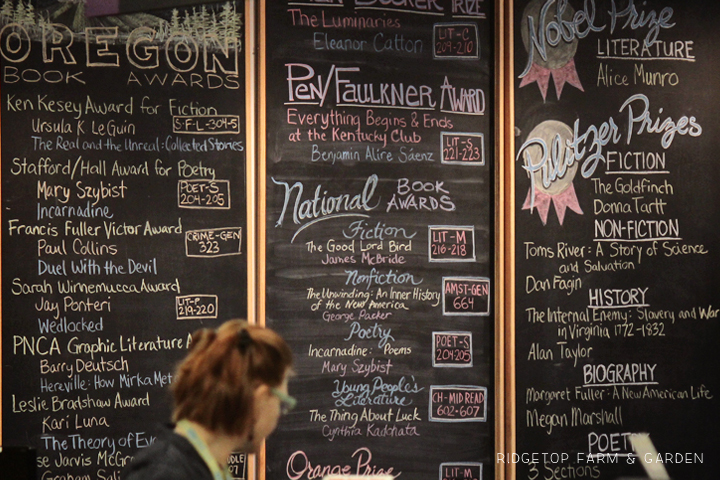 OREGON
BOOK AWARDS
Ken Kesey Award for Fiction
Ursula K LeGuin
S-F-L-304-5
The Real and the Unreal: Collected Stories
Stafford/Hall Award for Poetry
Mary Szybist
POET-S
204-205
Incarnadine
Francis Fuller Victor Award
Paul Collins
CRIME-GEN
323
Duel With the Devil
Sarah Winnemucca Award
Jay Ponteri
LIT-P
219-220
Wedlocked
PNCA Graphic Literature
Barry Deutsch
Hereville: How Mirka Met
Leslie Bradshaw Award
Kari Luna
The Theory of
Jarvis
Graham
The Luminaries
Eleanor Catton
LIT-C
209-210
Pen/Faulkner Award
Everything Begins & Ends
at the Kentucky Club
Benjamin Alire Sáenz
LIT-S
221-223
National BOOK
AWARDS
Fiction
The Good Lord Bird
James McBride
LIT-M
216-218
Nonfiction
The Unwinding: An Inner History
of the New America
George Packer
AMST-GEN
664
Poetry
Incarnadine: Poems
Mary Szybist
POET-S
204-205
Young People's
Literature
The Thing About Luck
Cynthia Kadohata
CH-MID READ
602-607
Orange Prize
LIT-M
Nobel Prize
LITERATURE
Alice Munro
Pulitzer Prizes
FICTION
The Goldfinch
Donna Tartt
NON-FICTION
Toms River: A Story of Science
and Salvation
Dan Fagin
HISTORY
The Internal Enemy: Slavery and War
in Virginia 1772-1832
Alan Taylor
BIOGRAPHY
Margaret Fuller: A New American Life
Megan Marshall
3 Sections
RIDGETOP FARM & GARDEN